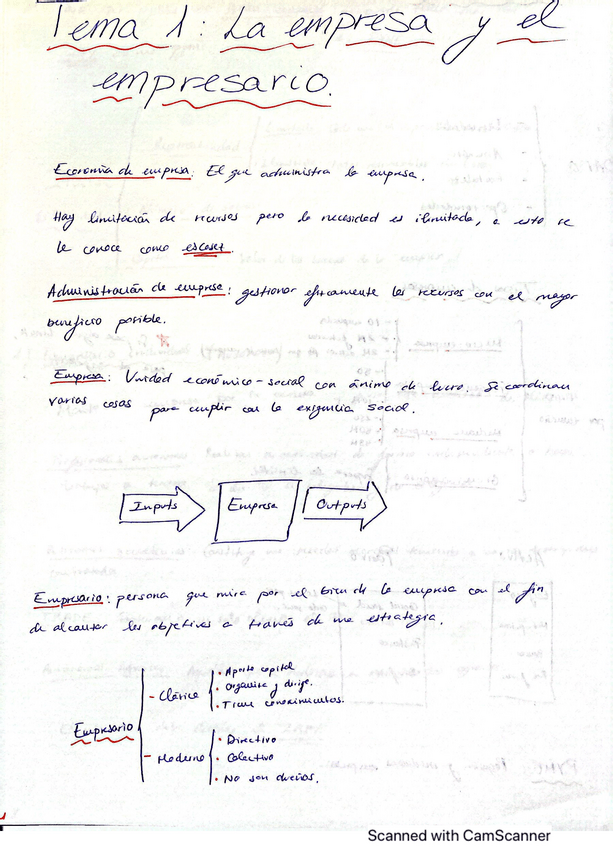 Tema 1: La empresa y el
empresario.
Economía de empresa: El que administra la empresa.
Hay limitación de recursos pero la necesidad es ilimitada, a esto se
le conoce como escasez.
Administración de empresa: gestionar eficamente los recursos con el mayor
beneficio posible.
Empresa: Unidad económico-social con ánimo de lucro. Se coordinan
varias cosas para cumplir con la exigencia social.
Inputs Empresa Outputs
Empresario: persona que mira por el bien de la empresa con el fin
de alcanzar los objetivos a través de una estrategia.
Empresario
- Clásico
• Aporta capital
• Organiza y dirige.
• Tiene conocimientos.
- Moderno
• Directivo
• Colectivo
• No son dueños.
Scanned with CamScanner